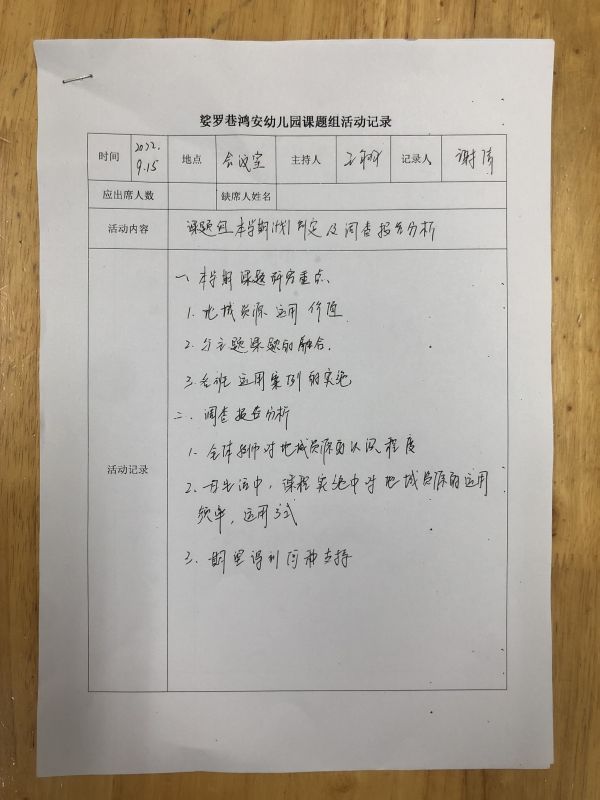 娑罗巷鸿安幼儿园课题组活动记录
时间 2022.9.15 地点 会议室 主持人 记录人 谢清
应出席人数 缺席人姓名
活动内容 课题组本学期计划制定及调查报告分析
活动记录
一、本学期课题研究重点
1. 地域资源运用价值
2. 与主题课题的融合.
3. 各班运用案例的实施
二、调查报告分析
1. 全体教师对地域资源的认识程度
2. 在生活中，课程实施中对地域资源的运用
频率，运用方式
3. 期望得到何种支持